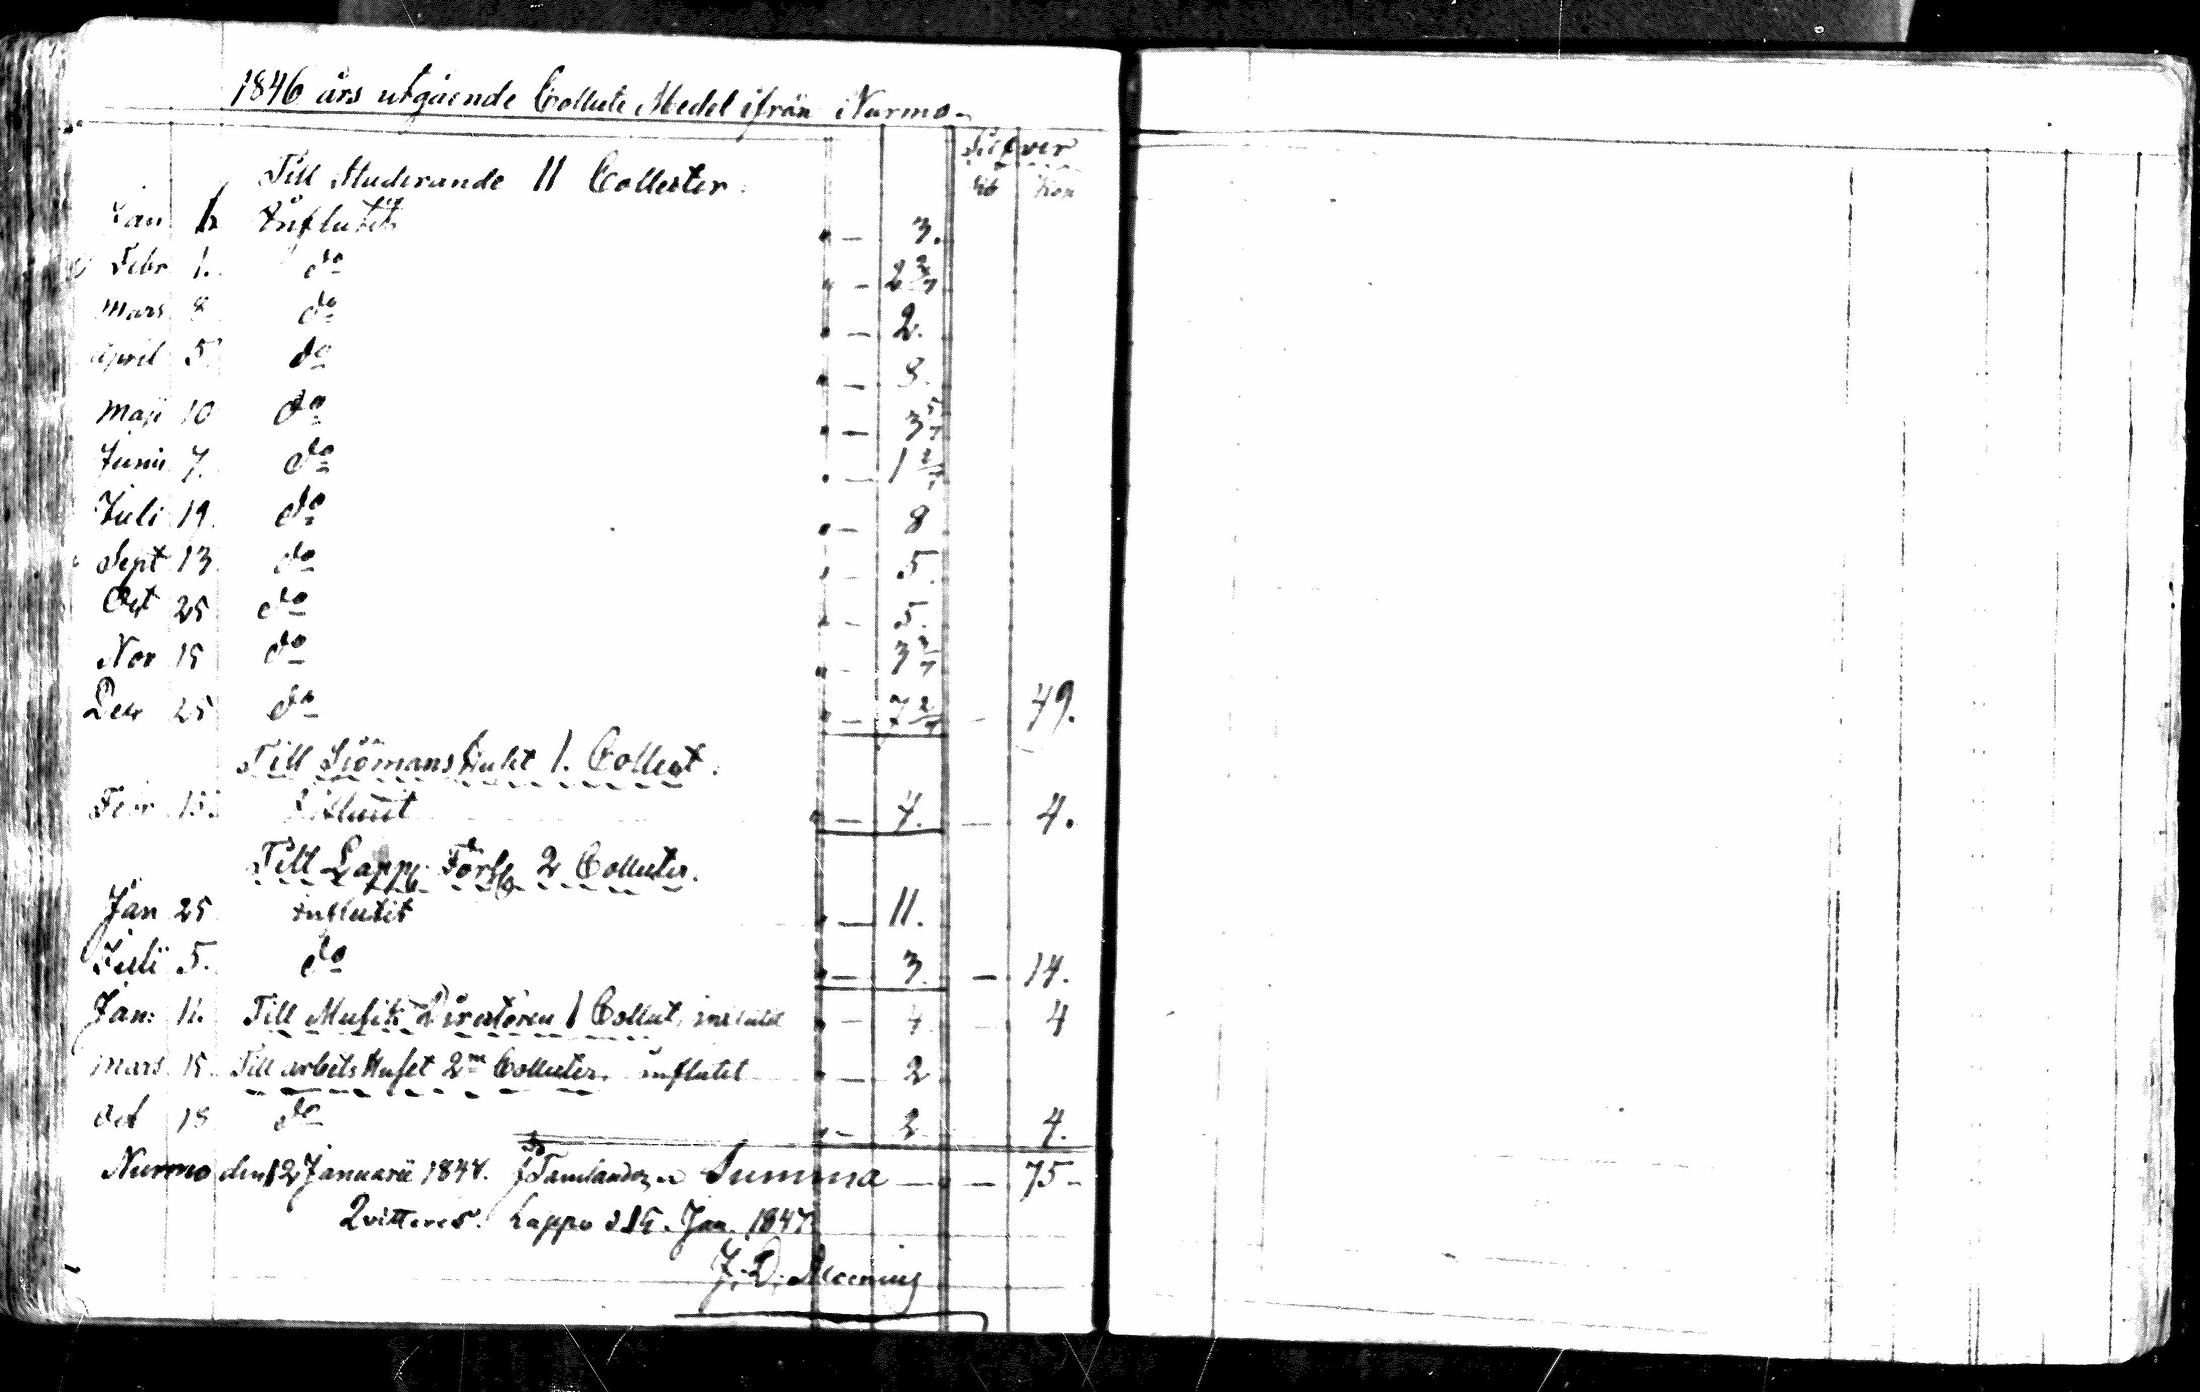 1846 års utgående Collecte Medel ifrån Nurmo
Silfver
Till Studerande 11 Collecter.
Rb Kop
Jan influtit — 3.
Febr 1. do — 2 2/7
Mars 8 do — 2.
April 5. do — 8.
Maji 10 do — 3 5/7
Junii 7. do — 1 2/7
Juli 19. do — 8
Sept 13 do — 5.
Oct 25 do — 5.
Nov 15 do — 3
Dec 25 do — 7 2/7 — 49.
Till Siömanshuset 1. Collect.
Febr 15. influtit — 4. — 4.
Till Lapp. Förs. 2 Collecter.
Jan 25 influtit — 11.
Julii 5. do — 3. — 14.
Jan: 11. Till Musik Directoren 1 Collect, influtit — 4 — 4
Mars 15. Till arbetsHuset 2ne Collecter. influtit — 2
Oct 18 do — 2 4.
Nurmo den 12 Januarii 1847. Summa — — 75 —
Qvitteres. Lappo d. 15. Jan. 1847
J. D. Alcenius